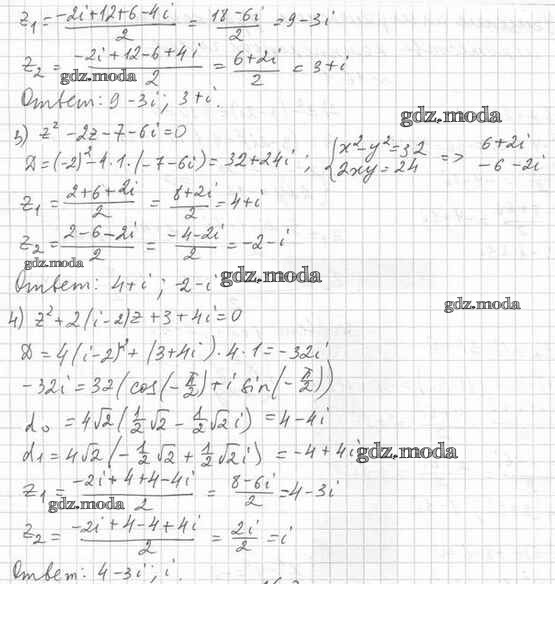 z₁ = (-2i+12+6-4i)/2 = (18-6i)/2 = 9-3i
z₂ = (-2i+12-6+4i)/2 = (6+2i)/2 = 3+i
gdz.moda
Ответ: 9-3i; 3+i.
gdz.moda
3) z² - 2z - 7 - 6i = 0
D = (-2)² - 4·1·(-7-6i) = 32+24i; {x²-y²=32 2xy=24 => 6+2i -6-2i
z₁ = (2+6+2i)/2 = (8+2i)/2 = 4+i
z₂ = (2-6-2i)/2 = (-4-2i)/2 = -2-i
gdz.moda
gdz.moda
Ответ: 4+i; -2-i
gdz.moda
4) z² + 2(i-2)z + 3 + 4i = 0
D = 4(i-2)² + (3+4i)·4·1 = -32i
-32i = 32(cos(-π/2) + i sin(-π/2))
d₀ = 4√2(1/2√2 - 1/2√2i) = 4-4i
d₁ = 4√2(-1/2√2 + 1/2√2i) = -4+4i
gdz.moda
z₁ = (-2i+4+4-4i)/2 = (8-6i)/2 = 4-3i
gdz.moda
z₂ = (-2i+4-4+4i)/2 = 2i/2 = i
Ответ: 4-3i; i.